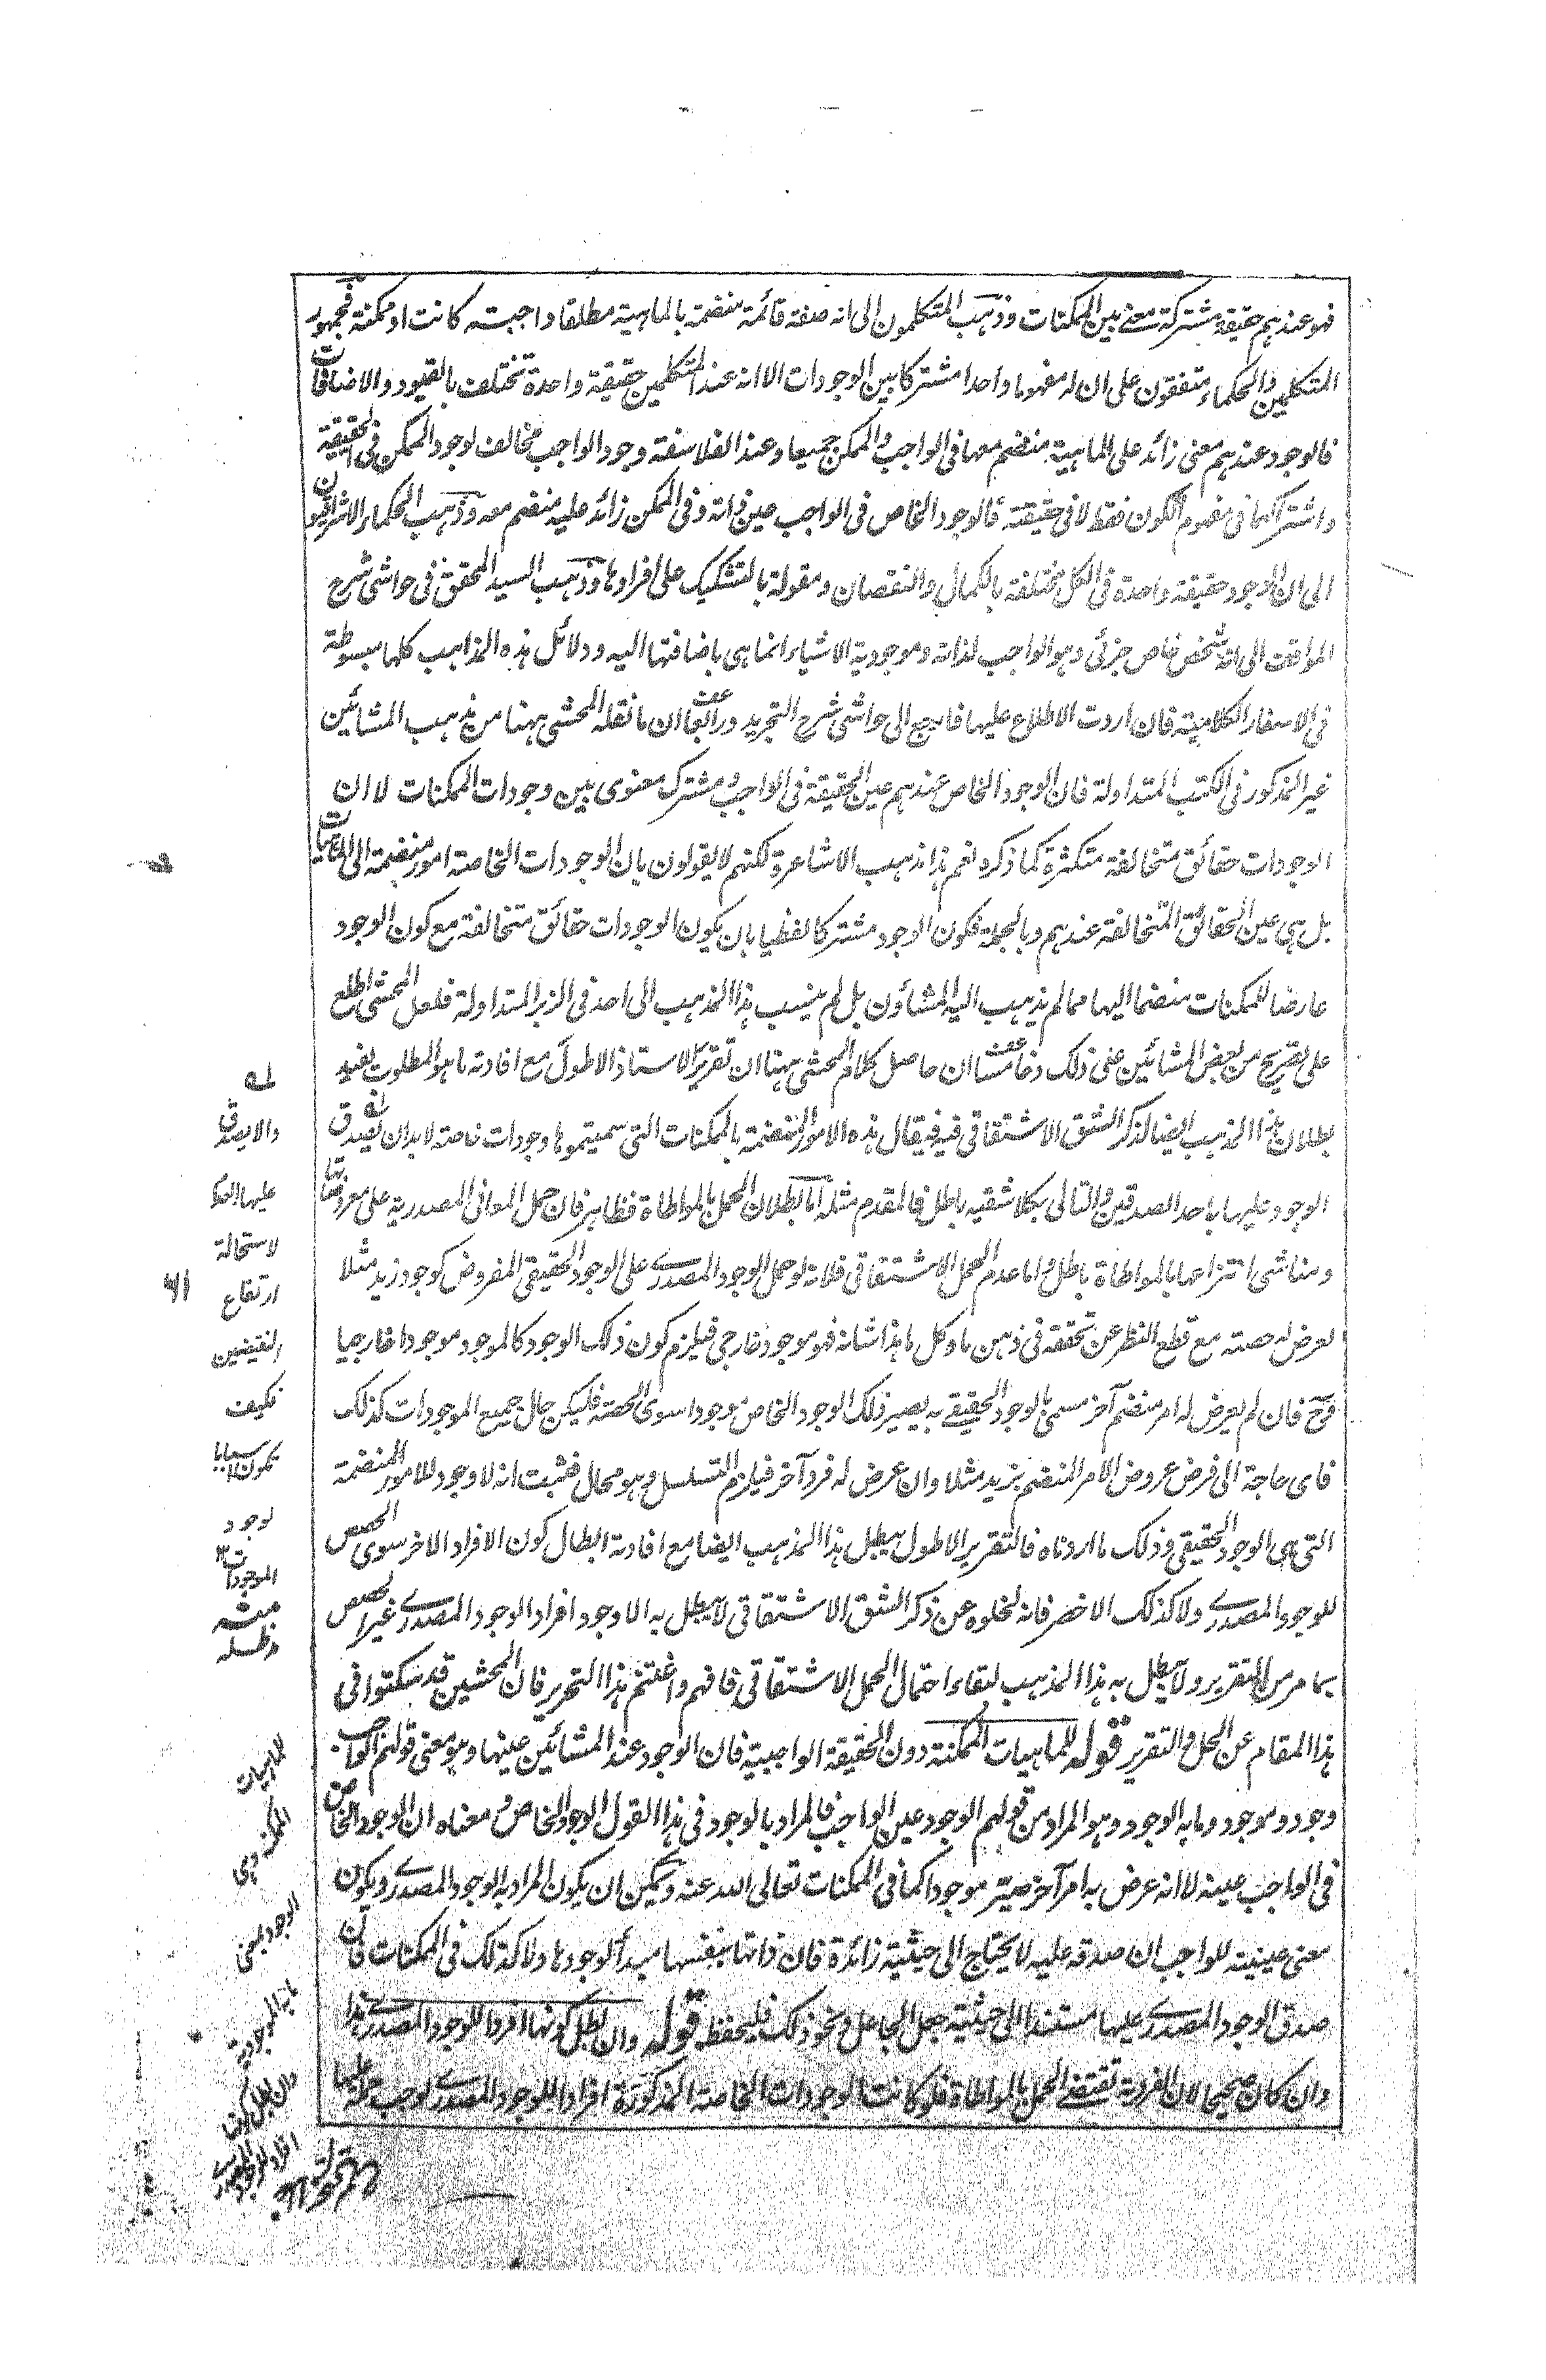 فهو عندهم حقيقة مشتركة معنے بين الممكنات وذهب المتكلمون الى انه صفة قائمة منضمة بالماهية مطلقا واجبته كانت او ممكنة فجمهور
المتكلمين والحكماء متفقون على ان له مفهوما واحدا مشتركا بين الوجودات الا انه عند المتكلمين حقيقة واحدة تختلف بالقيود والاضافات
فالوجود عندهم معنى زائد على الماهية منضم معها فى الواجب والممكن جميعا وعند الفلاسفة وجود الواجب مخالف لوجود الممكن فى الحقيقة
واشتراكهما فى مفهوم الكون فقط لا فى حقيقته فالوجود الخاص فى الواجب عين ذاته وفى الممكن زائد عليه منضم معه وذهب الحكماء الاشراقيون
الى ان الوجود حقيقة واحدة فى الكل مختلفة بالكمال والنقصان ومقولة بالتشكيك على افرادها وذهب السيد المحقق فى حواشى شرح
المواقف الى انه شخص خاص جزئى وهو الواجب لذاته وموجودية الاشياء انما هى باضافتها اليه ودلائل هذه المذاهب كلها مبسوطة
فى الاسفار الكلامية فان اردت الاطلاع عليها فارجع الى حواشى شرح التجريد ورابعا ان ما نقله المحشى ههنا من مذهب المشائين
غير المذكور فى الكتب المتداولة فان الوجود الخاص عندهم عين الحقيقة فى الواجب ومشترك معنوى بين وجودات الممكنات لا ان
الوجودات حقائق متخالفة متكثرة كما ذكره نعم هذا مذهب الاشاعرة لكنهم لا يقولون بان الوجودات الخاصة امور منضمة الى الماهيات
بل هى عين الحقائق المتخالفة عندهم وبالجملة فكون الوجود مشتركا لفظيا بان يكون الوجودات حقائق متخالفة مع كون الوجود
عارضا للممكنات منضما اليها مما لم يذهب اليه المشاؤن بل لم ينسب هذا المذهب الى احد فى الزبر المتداولة فلعل المحشى اطلع
على تصريح من بعض المشائين على ذلك وخامسا ان حاصل كلام المحشى ههنا ان تقرير الاستاذ الاطول مع افادته ما هو المطلوب يفيد
بطلان هذا المذهب ايضا لذكر الشق الاشتقاقى فيه فيقال هذه الامور المنضمة بالممكنات التى سميتموها وجودات خاصة لا بد ان يصدق
الوجود عليها باحد الصدقين والتالى بكلا شقيه باطل فالمقدم مثله اما بطلان الحمل بالمواطاة فظاهر فان حمل المعانى المصدرية على معروضاتها
ومناشى انتزاعها بالمواطاة باطل واما عدم الحمل الاشتقاقى فلانه لو حمل الوجود المصدرے على الوجود الحقيقى المفروض كوجود زيد مثلا
لعرض له حصته مع قطع النظر عن تحققه فى ذهن ما وكل ما هذا شانه فهو موجود خارجى فيلزم كون ذلك الوجود كالموجود موجودا خارجيا
فح فان لم يعرض له امر منضم آخر مسمى بالوجود الحقيقے به يصير ذلك الوجود الخاص موجودا سوى الحصته فليكن حال جميع الموجودات كذلك
فاى حاجة الى فرض عروض الامر المنضم بزيد مثلا وان عرض له فرد آخر فيلزم التسلسل وهو محال فثبت انه لا وجود للامور المنضمة
التى هى الوجود الحقيقى وذلك ما اردناه فالتقرير الاطول يبطل هذا المذهب ايضا مع افادته ابطال كون الافراد الاخر سوى الحصص
للوجود المصدرے ولا كذلك الاخصر فانه لخلوه عن ذكر الشق الاشتقاقى لا يبطل به الا وجود افراد الوجود المصدرے غير الحصص
بما مر من التقرير ولا يبطل به هذا المذهب لبقاء احتمال الحمل الاشتقاقى فافهم واغتنم هذا التحرير فان المحشين قد سكتوا فى
هذا المقام عن الحل والتقرير قوله للماهيات الممكنة دون الحقيقة الواجبية فان الوجود عند المشائين عينها وهو معنى قولهم الواجب
وجود وموجود وما به الوجود وهو المراد من قولهم الوجود عين الواجب فالمراد بالوجود فى هذا القول الوجود الخاص ومعناه ان الوجود الخاص
فى الواجب عينه لا انه عرض به امر آخر صيّر موجودا كما فى الممكنات تعالى الله عنه ويمكن ان يكون المراد به الوجود المصدرے ويكون
معنى عينيته للواجب ان صدقه عليه لا يحتاج الى حيثية زائدة فان ذاتها بنفسها مبدأ لوجودها ولا كذلك فى الممكنات فان
صدق الوجود المصدرے عليها مستند الى حيثية جعل الجاعل ونحو ذلك فليحفظ قوله وان بطل كونها افرادا للوجود المصدرے هذا
وان كان صحيحا لان الفردية تقتضے الحمل بالمواطاة فلو كانت الوجودات الخاصة المذكورة افرادا للوجود المصدرے لوجب حمله عليها
والا يصدق
عليها
لاستحالة
ارتفاع
النقيضين
فكيف
تكون اسبابا
لوجود
الموجودات
للماهيات
الممكنة وهى
الوجود بمعنى
ما به الموجودية
وان بطل كونها